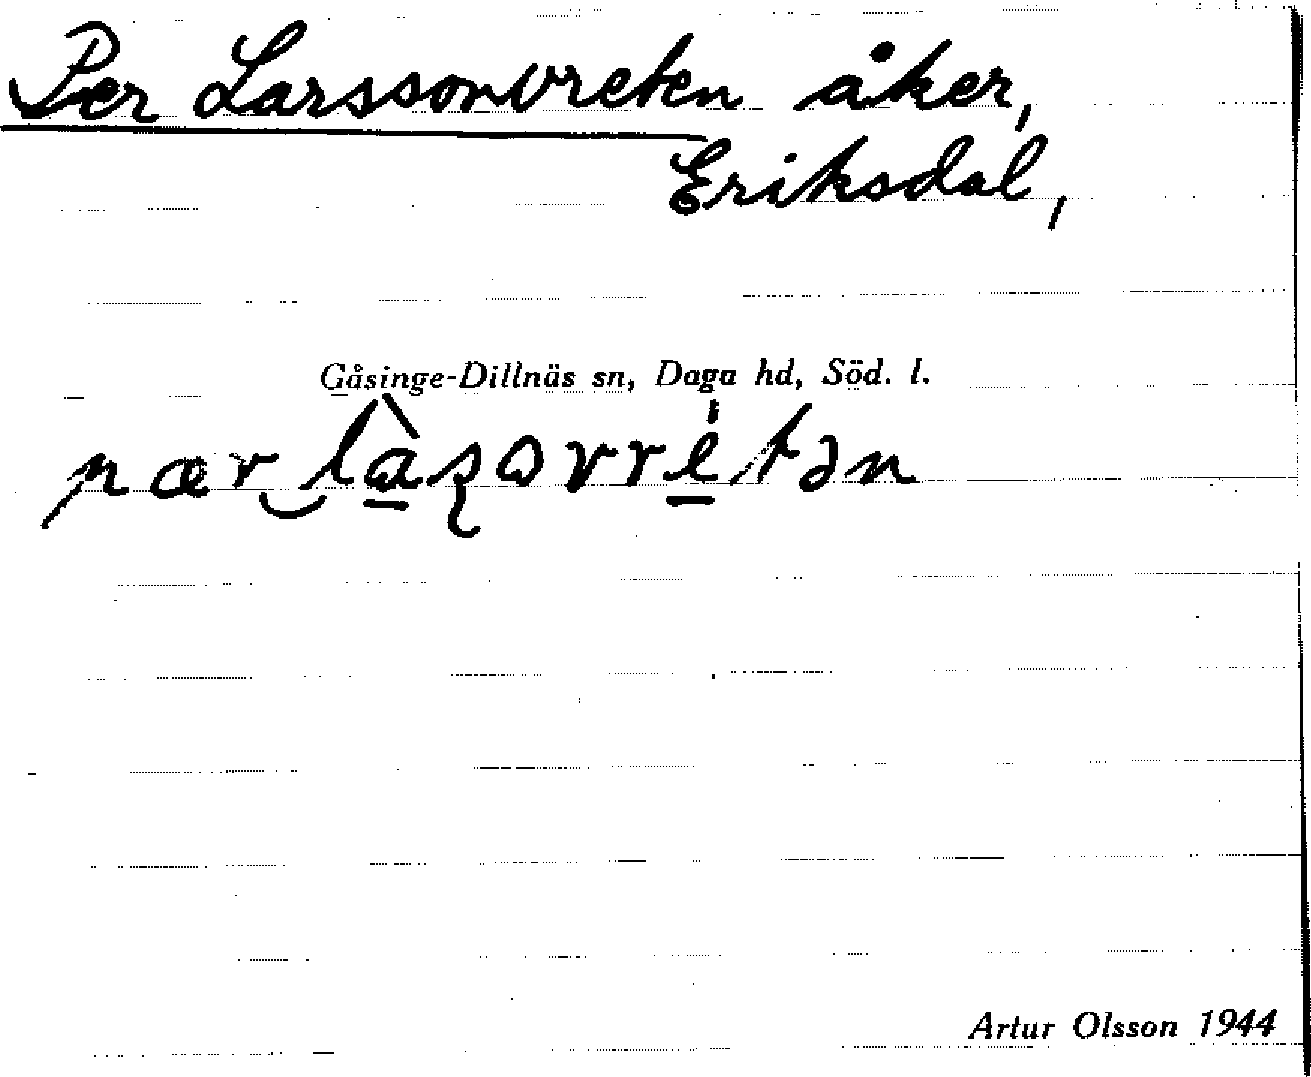 Per Larssonvreten åker,
Eriksdal,
Gåsinge-Dillnäs sn, Daga hd, Söd. l.
pær‿là̱ʂovré̱tən
Artur Olsson 1944